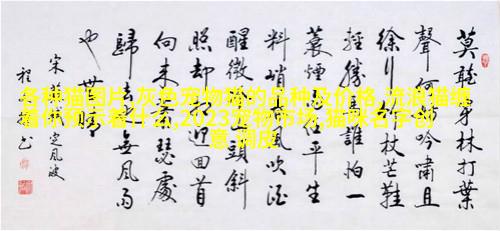 各种猫图片,灰色宠物猫的品种及价格,流浪猫缠
着你预示着什么,2023宠物市场,猫咪名字创
意 调皮
莫聽穿林打葉
聲何妨吟嘯且
徐行竹杖芒鞋
輕勝馬誰怕一
蓑煙雨任平生
料峭春風吹酒
醒微冷山頭斜
照却相迎回首
向来萧瑟處
歸去也無風雨
也無晴
宋蘇軾定風波